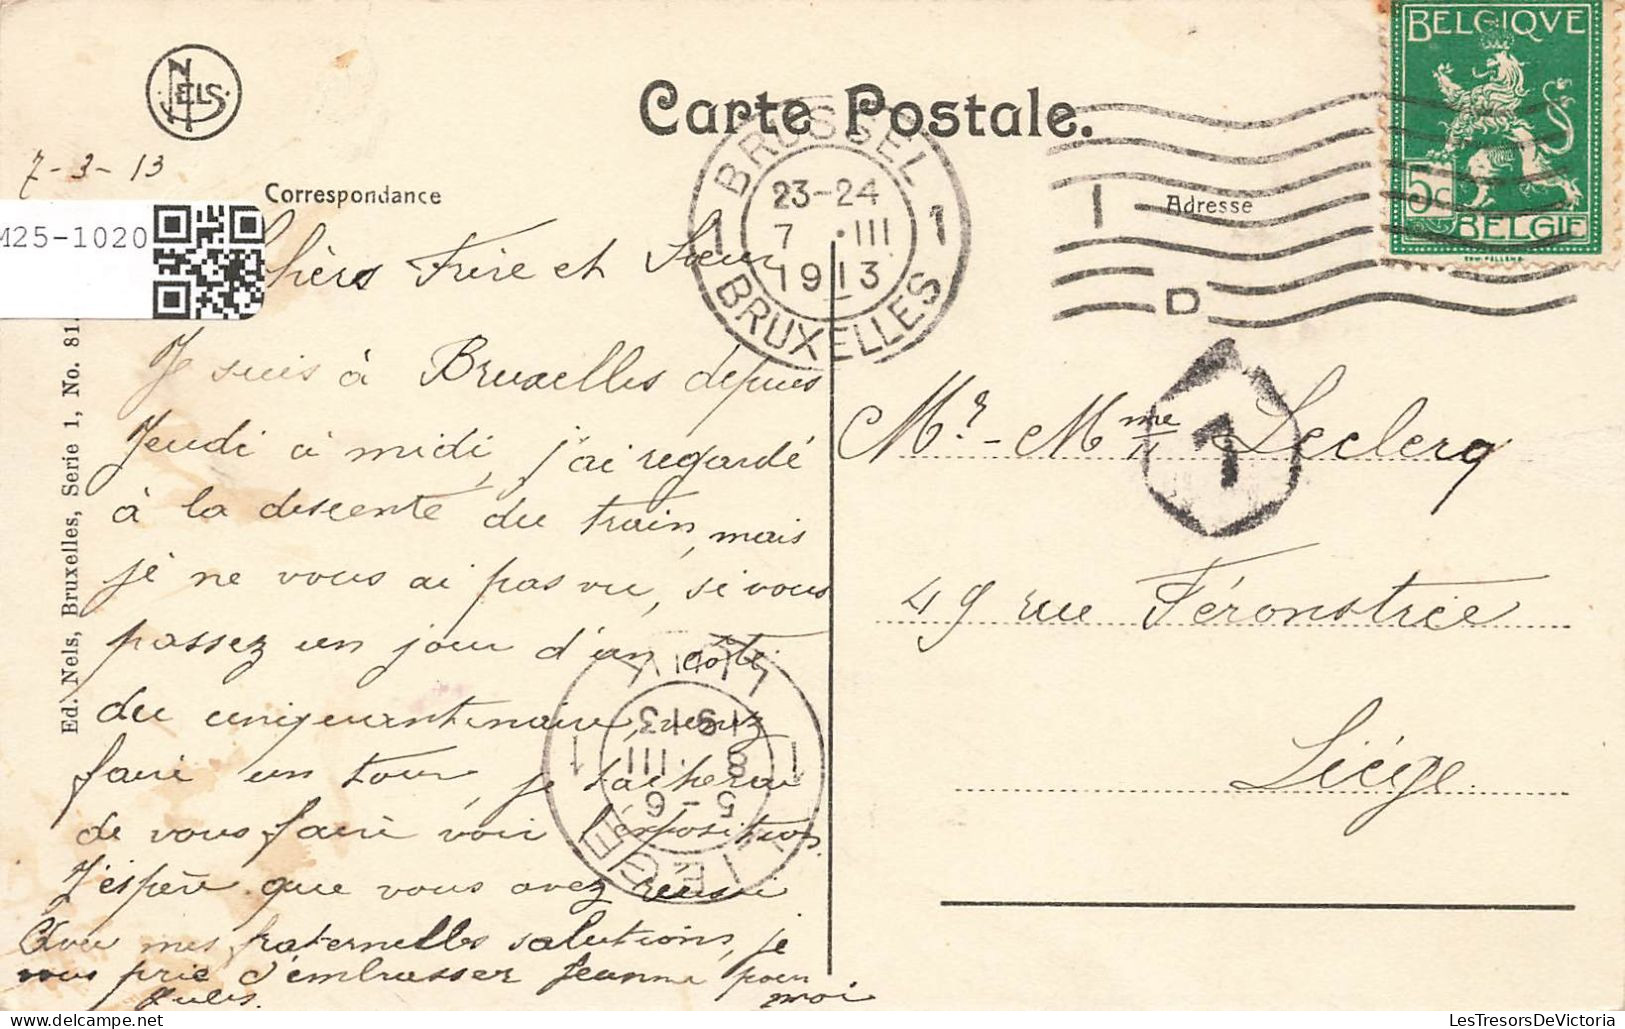 NELS
Carte Postale.
BELGIQVE
5c
BELGIE
7-3-13
Correspondance
Adresse
M25-1020
BRUSSEL
1 1
23-24
7 ·III
1913
BRUXELLES
I
D
Chers Frère et Sœur
Je suis à Bruxelles depuis
Jeudi à midi, j'ai regardé
à la descente du train, mais
je ne vous ai pas vu, si vous
passez un jour d'un côté
du cinquantenaire, venez
faire un tour, je tacherai
de vous faire voir l'exposition.
J'espère que vous avez reussi
Avec mes fraternelles salutions, je
vous prie d'embrasser Jeanne pour
moi
Jules.
Mr. - Mme Leclerq
1
49 rue Féronstrée
Liége
LUIK
1 1
5-6
8 ·III
1913
LIEGE
Ed. Nels, Bruxelles, Serie 1, No. 81.
LesTresorsDeVictoria